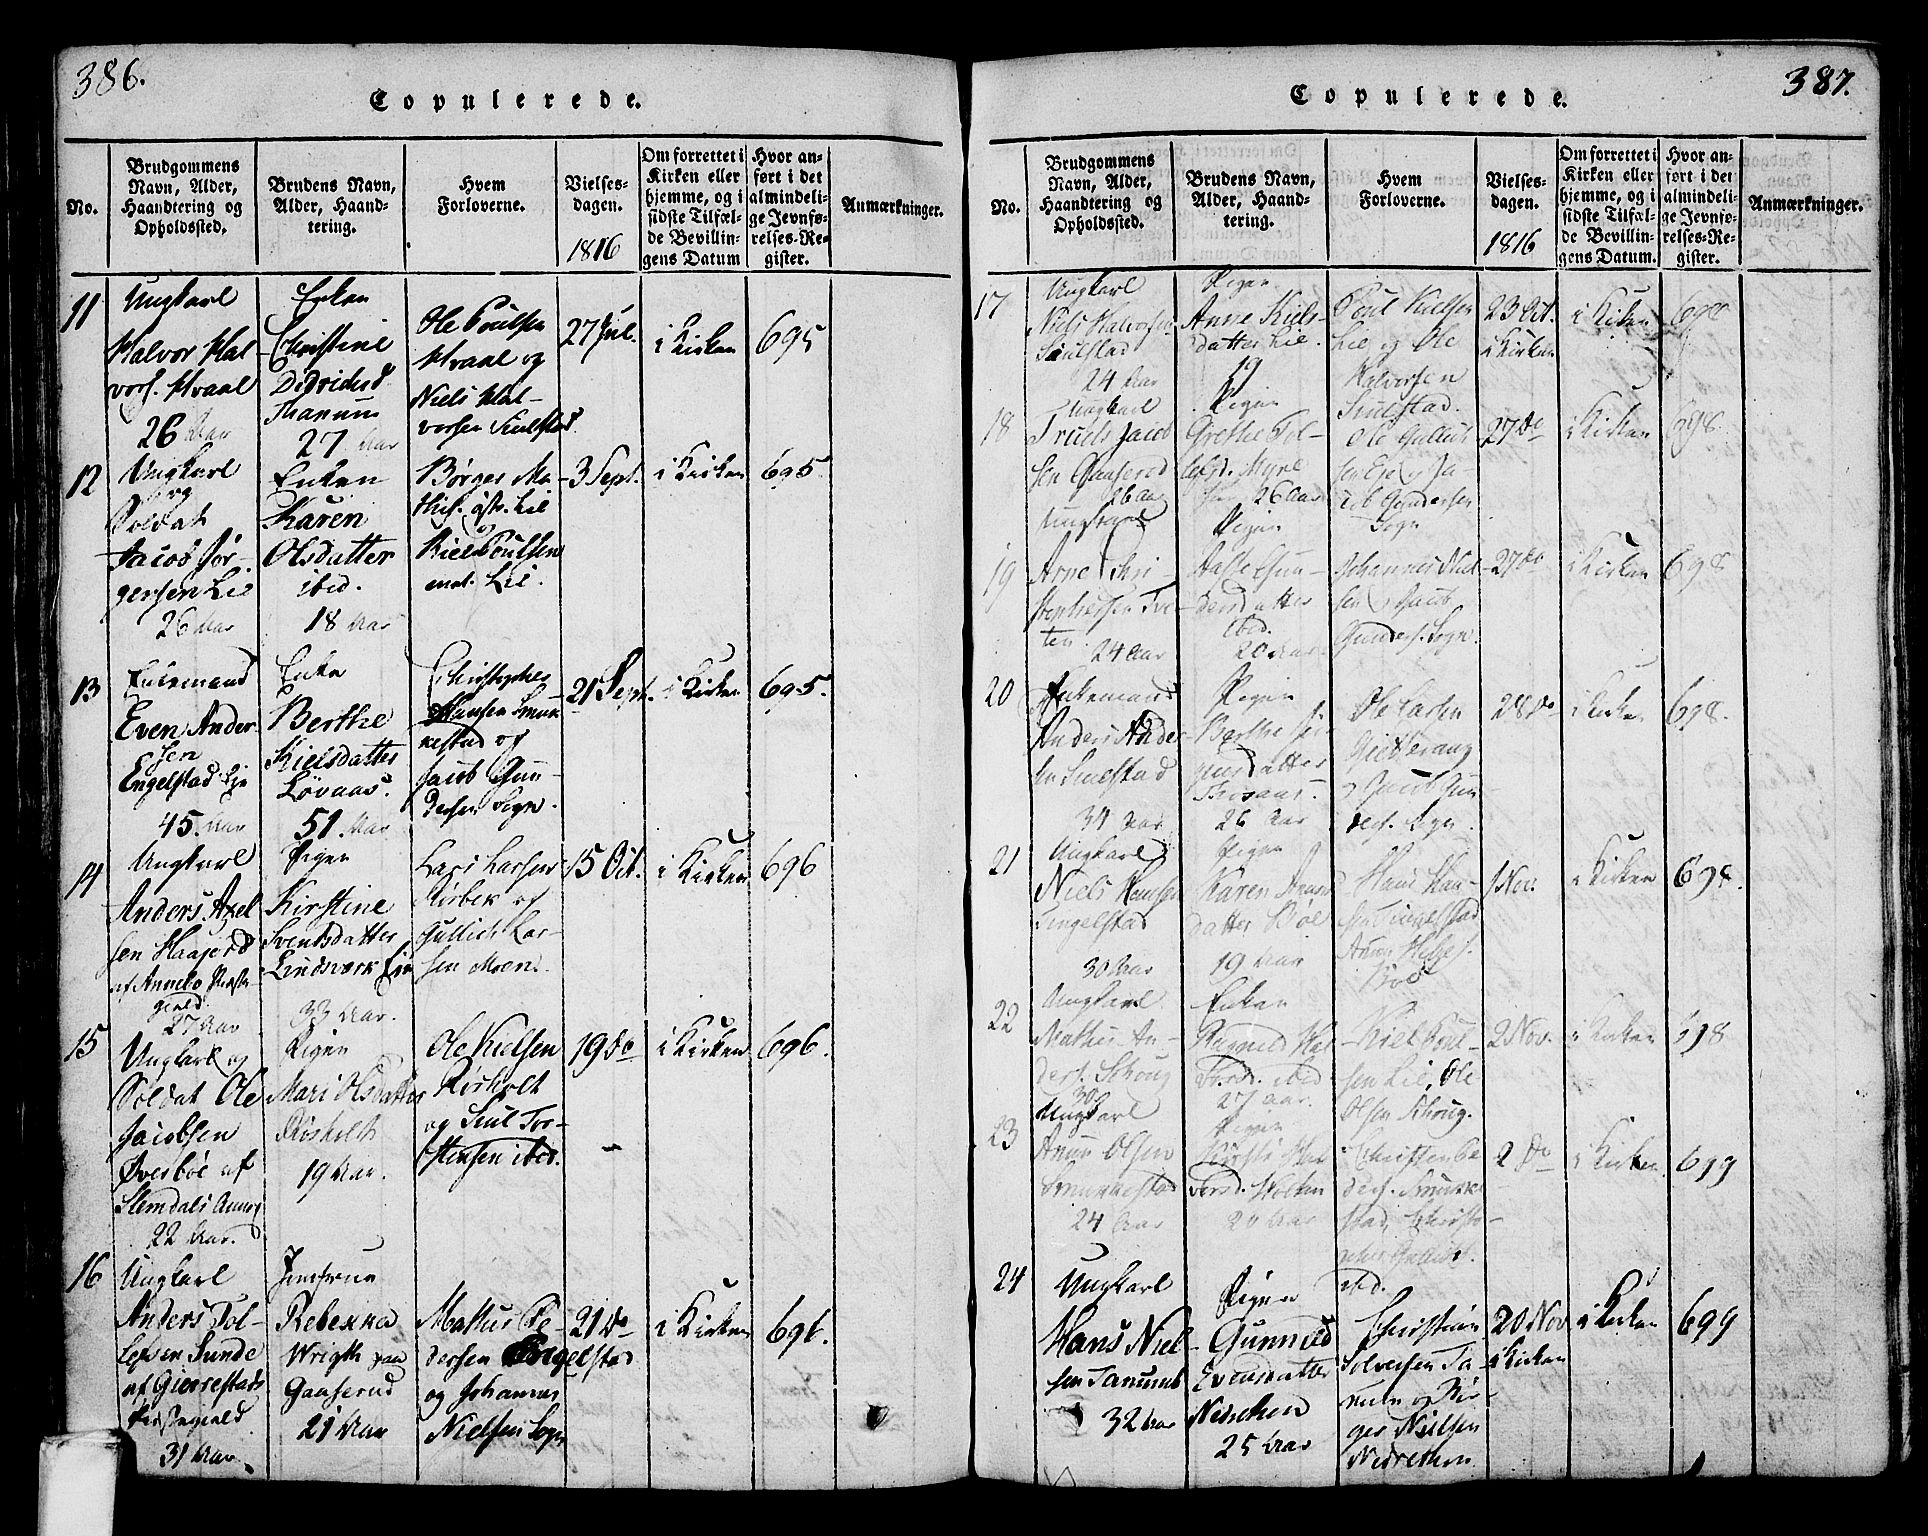 386.
Copulerede.
No.
Brudgommens
Navn, Alder,
Haandtering og
Opholdssted.
Brudens Navn,
Alder, Haand-
tering.
Hvem
Forloverne.
Vielses-
dagen.
1816
Om forrettet i
Kirken eller
hjemme, og i
sidste Tilfæl-
de Bevillin-
gens Datum
Hvor an-
ført i det
almindeli-
ge Jevnfø-
relses-Re-
gister.
Anmærkninger.
11
Ungkarl
Halvor Hal-
vors. Hvaal
26 Aar
Enken
Christine
Didrichsd.
Tanum
27 Aar
Ole Poulsen
Hvaal og
Niels Hal-
vorsen Sculstad
27 Jul.
i Kirken
695
12
Ungkarl
og
Soldat
Jacob Jør-
gensen Lie
26 Aar
Enken
Karen
Olsdatter
ibid.
18 Aar
Børger Ma-
this. østr. Lie
Kield Poulsen
mel. Lie.
3 Sept.
i Kirken
695
13
Enkemand
Even Ander-
sen
Engelstad Eje
45. Aar
Enke
Berthe
Kielsdatter
Løvaas.
51. Aar
Christopher
Hansen Smuk-
kestad og
Jacob Gun-
dersen Sogn.
21 Sept.
i Kirken
695.
14
Ungkarl
Anders Axel
sen Haajord
af Annebo Præste
gield.
27 Aar
Pigen
Kirstine
Svendsdatter
Lindsverk Eie
33 Aar.
Lars Larsen
Rørbek og
Gullich Lar-
sen Moen.
15 Oct.
i Kirken
696
15
Ungkarl og
Soldat Ole
Jacobsen
Øverbøe af
Slemdals Annex
22 Aar.
Pigen
Mari Olsdatter
Røsholt
19 Aar.
Ole Nielsen
Rørholt
og Scul Tor-
stensen ibid.
19 do
i Kirken
696.
16
Ungkarl
Anders Tol-
lefsen Sunde
af Gierrestads
Præstegield
31 Aar.
Jomfrue
Rebekka
Wrigth paa
Gaaserud
21 Aar
Mathis Pe-
dersen Engelstad
og Johannes
Nielsen Sogn
21 do
i Kirken
696.
387.
Copulerede.
No.
Brudgommens
Navn, Alder,
Haandtering og
Opholdssted.
Brudens Navn,
Alder, Haand-
tering.
Hvem
Forloverne.
Vielses-
dagen.
1816
Om forrettet i
Kirken eller
hjemme, og i
sidste Tilfæl-
de Bevillin-
gens Datum.
Hvor an-
ført i det
almindeli-
ge Jevnfø-
relses-Re-
gister.
Anmærkninger.
17
Ungkarl
Niels Halvorsen
Sculstad
24 Aar
Pigen
Anne Kiels-
datter Lie.
19
Poul Kielsen
Lie og Ole
Halvorsen
Sculstad.
23 Oct.
i Kirken
i Kirken
698
18
Ungkarl
Truels Jacob
sen Gaaserud
26 aar
Pigen
Grethe Tol-
lefsd. Myre
26 Aar
Ole Gullich
sen Eje, Ja-
cob Gundersen
Sogn
27 do
i Kirken
698.
19
Ungkarl
Arne Chri-
stophersen Tve-
ten
24 Aar
Pigen
Aasle Gun-
dersdatter
ibid.
20 Aar.
Johannes Niel-
sen, Jacob
Gunders. Sogn.
27 do
i Kirken
698
20
Enkemand
Anders Ander-
sen Sculstad
34 Aar
Pigen
Berthe Jør-
gensdatter
26 Aar
Ole Larsen
Jacob Gun-
ders. Sogn.
28 do
i Kirken
698.
21
Ungkarl
Niels Hansen
Tingelstad
30 Aar
Pigen
Karen Amund
datter Bøe
19 Aar
Hans Han-
sen Tingelstad
Amun Helges.
Bøe
1 Nov.
i Kirken
698.
22
Ungkarl
Mathis An-
ders. Schoug
30
Enken
Ragnild Hal
vorsd. ibid
27 aar.
Kiel Poul-
sen Lie, Ole
Olsen Schoug.
2 Nov.
i Kirken
698
23
Ungkarl
Amun Olsen
Smukkestad
24 Aar
Pigen
Kirsti Hal
vorsd. Holtan
20 Aar
Christen Pe-
ders. Smukke-
stad, Christo-
ibid.
2 do
i Kirken
699
24
Ungkarl
Hans Niel-
sen Tanum
32 Aar
Pigen
Gunnild
Evensdatter
25 Aar
Christian
Solvesen Ta-
num og Bør-
ger Nielsen
Nedrethon
20 Nov
i Kirken
i Kirken
699